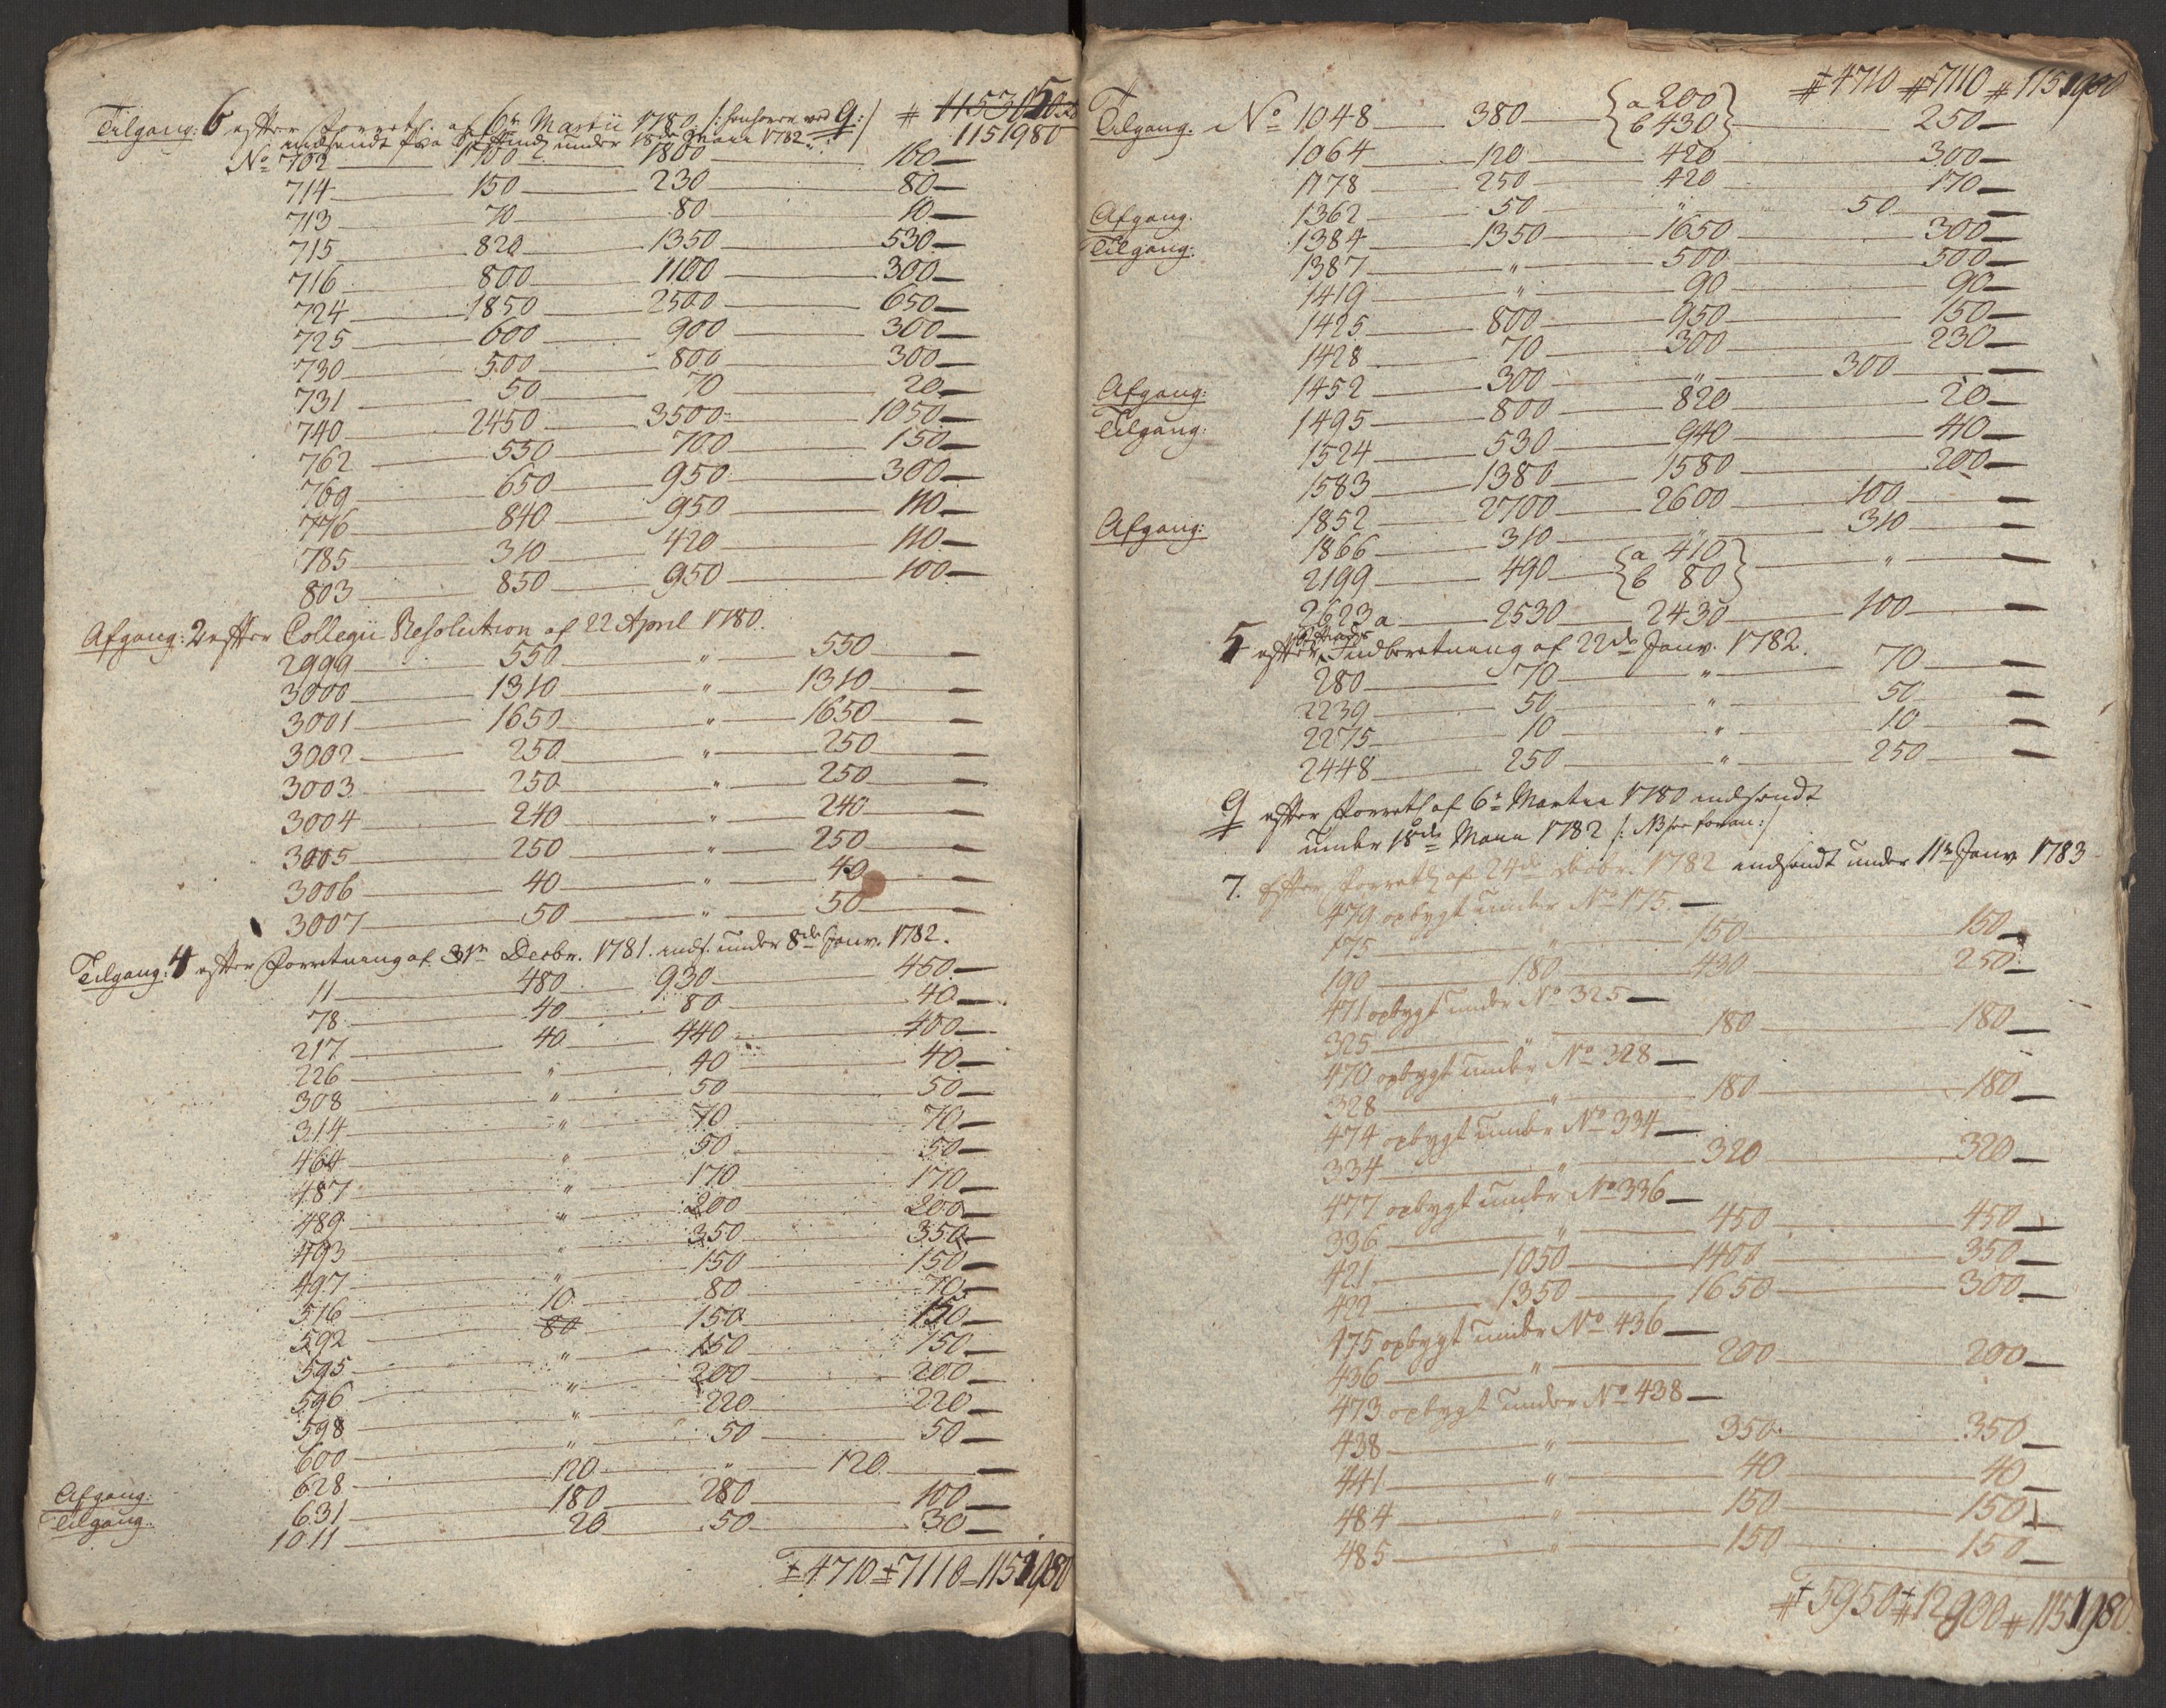 Tilgang: 6 efter Forretn. af 6te Martii 1780 /: henhører ved 9 :/ # 1153050
indsendt fra under 18de Martii 1782. 1151980
No 702 1700 1800 100 —
714 150 230 80 —
713 70 80 10 —
715 820 1350 530 —
716 800 1100 300 —
724 1850 2500 650 —
725 600 900 300 —
730 500 800 300 —
731 50 70 20 —
740 2450 3500 1050 —
762 550 700 150 —
769 650 950 300 —
776 840 950 110 —
785 310 420 110 —
803 850 950 100 —
Afgang: 2 efter Collegii Resolution af 22 April 1780.
2999 550 " 550 —
3000 1310 " 1310 —
3001 1650 " 1650 —
3002 250 " 250 —
3003 250 " 250 —
3004 240 " 240 —
3005 250 " 250 —
3006 40 " 40 —
3007 50 " 50 —
Tilgang: 4 efter Forretning af 31te Decbr. 1781. inds. under 8de Janv. 1782.
11 480 930 450 —
78 40 80 40 —
217 40 440 400 —
226 " 40 40 —
308 " 50 50 —
314 " 70 70 —
464 " 50 50 —
487 " 170 170 —
489 " 200 200 —
493 " 350 350 —
497 " 150 150 —
516 10 80 70 —
592 80 150 150 —
595 " 150 150 —
596 " 200 200 —
598 " 220 220 —
600 " 50 50 —
Afgang: 628 120 " 120 —
Tilgang: 631 180 280 100 —
1011 20 50 30 —
± 4710 ± 7110 = 1151980
# 4710 # 7110 # 1151980
Tilgang. No 1048 380 {a 200 b 430} 250 —
1064 120 420 300 —
1178 250 420 170 —
Afgang. 1362 50 " 50 —
Tilgang: 1384 1350 1650 300 —
1387 " 500 500 —
1419 " 90 90 —
1425 800 950 150 —
1428 70 300 230 —
Afgang: 1452 300 " 300 —
Tilgang: 1495 800 820 20 —
1524 530 940 410 —
1583 1380 1580 200 —
Afgang: 1852 2700 2600 100 —
1866 310 " 310 —
2199 490 {a 410 b 80} " —
2623 a 2530 2430 100 —
5 efter Indberetning af 22de Janv. 1782.
280 70 " 70 —
2239 50 " 50 —
2275 10 " 10 —
2448 250 " 250 —
9 efter Forretn af 6te Martii 1780 indsendt
under 18de Martii 1782 /: NB see foran :/
7. Efter Forretn af 24de Decbr. 1782 indsendt under 11te Janv 1783
479 opbygt under No 175. —
175 " 150 150 —
190 180 430 250 —
471 opbygt under No 325 —
325 " 180 180 —
470 opbygt under No 328 —
328 " 180 180 —
474 opbygt under No 334 —
334 " 320 320 —
477 opbygt under No 336 —
336 " 450 450 —
421 1050 1400 350 —
422 1350 1650 300 —
475 opbygt under No 436 —
436 " 200 200 —
473 opbygt under No 438 —
438 " 350 350 —
441 " 40 40 —
484 " 150 150 —
485 " 150 150 —
# 5950 # 12900 # 1151980